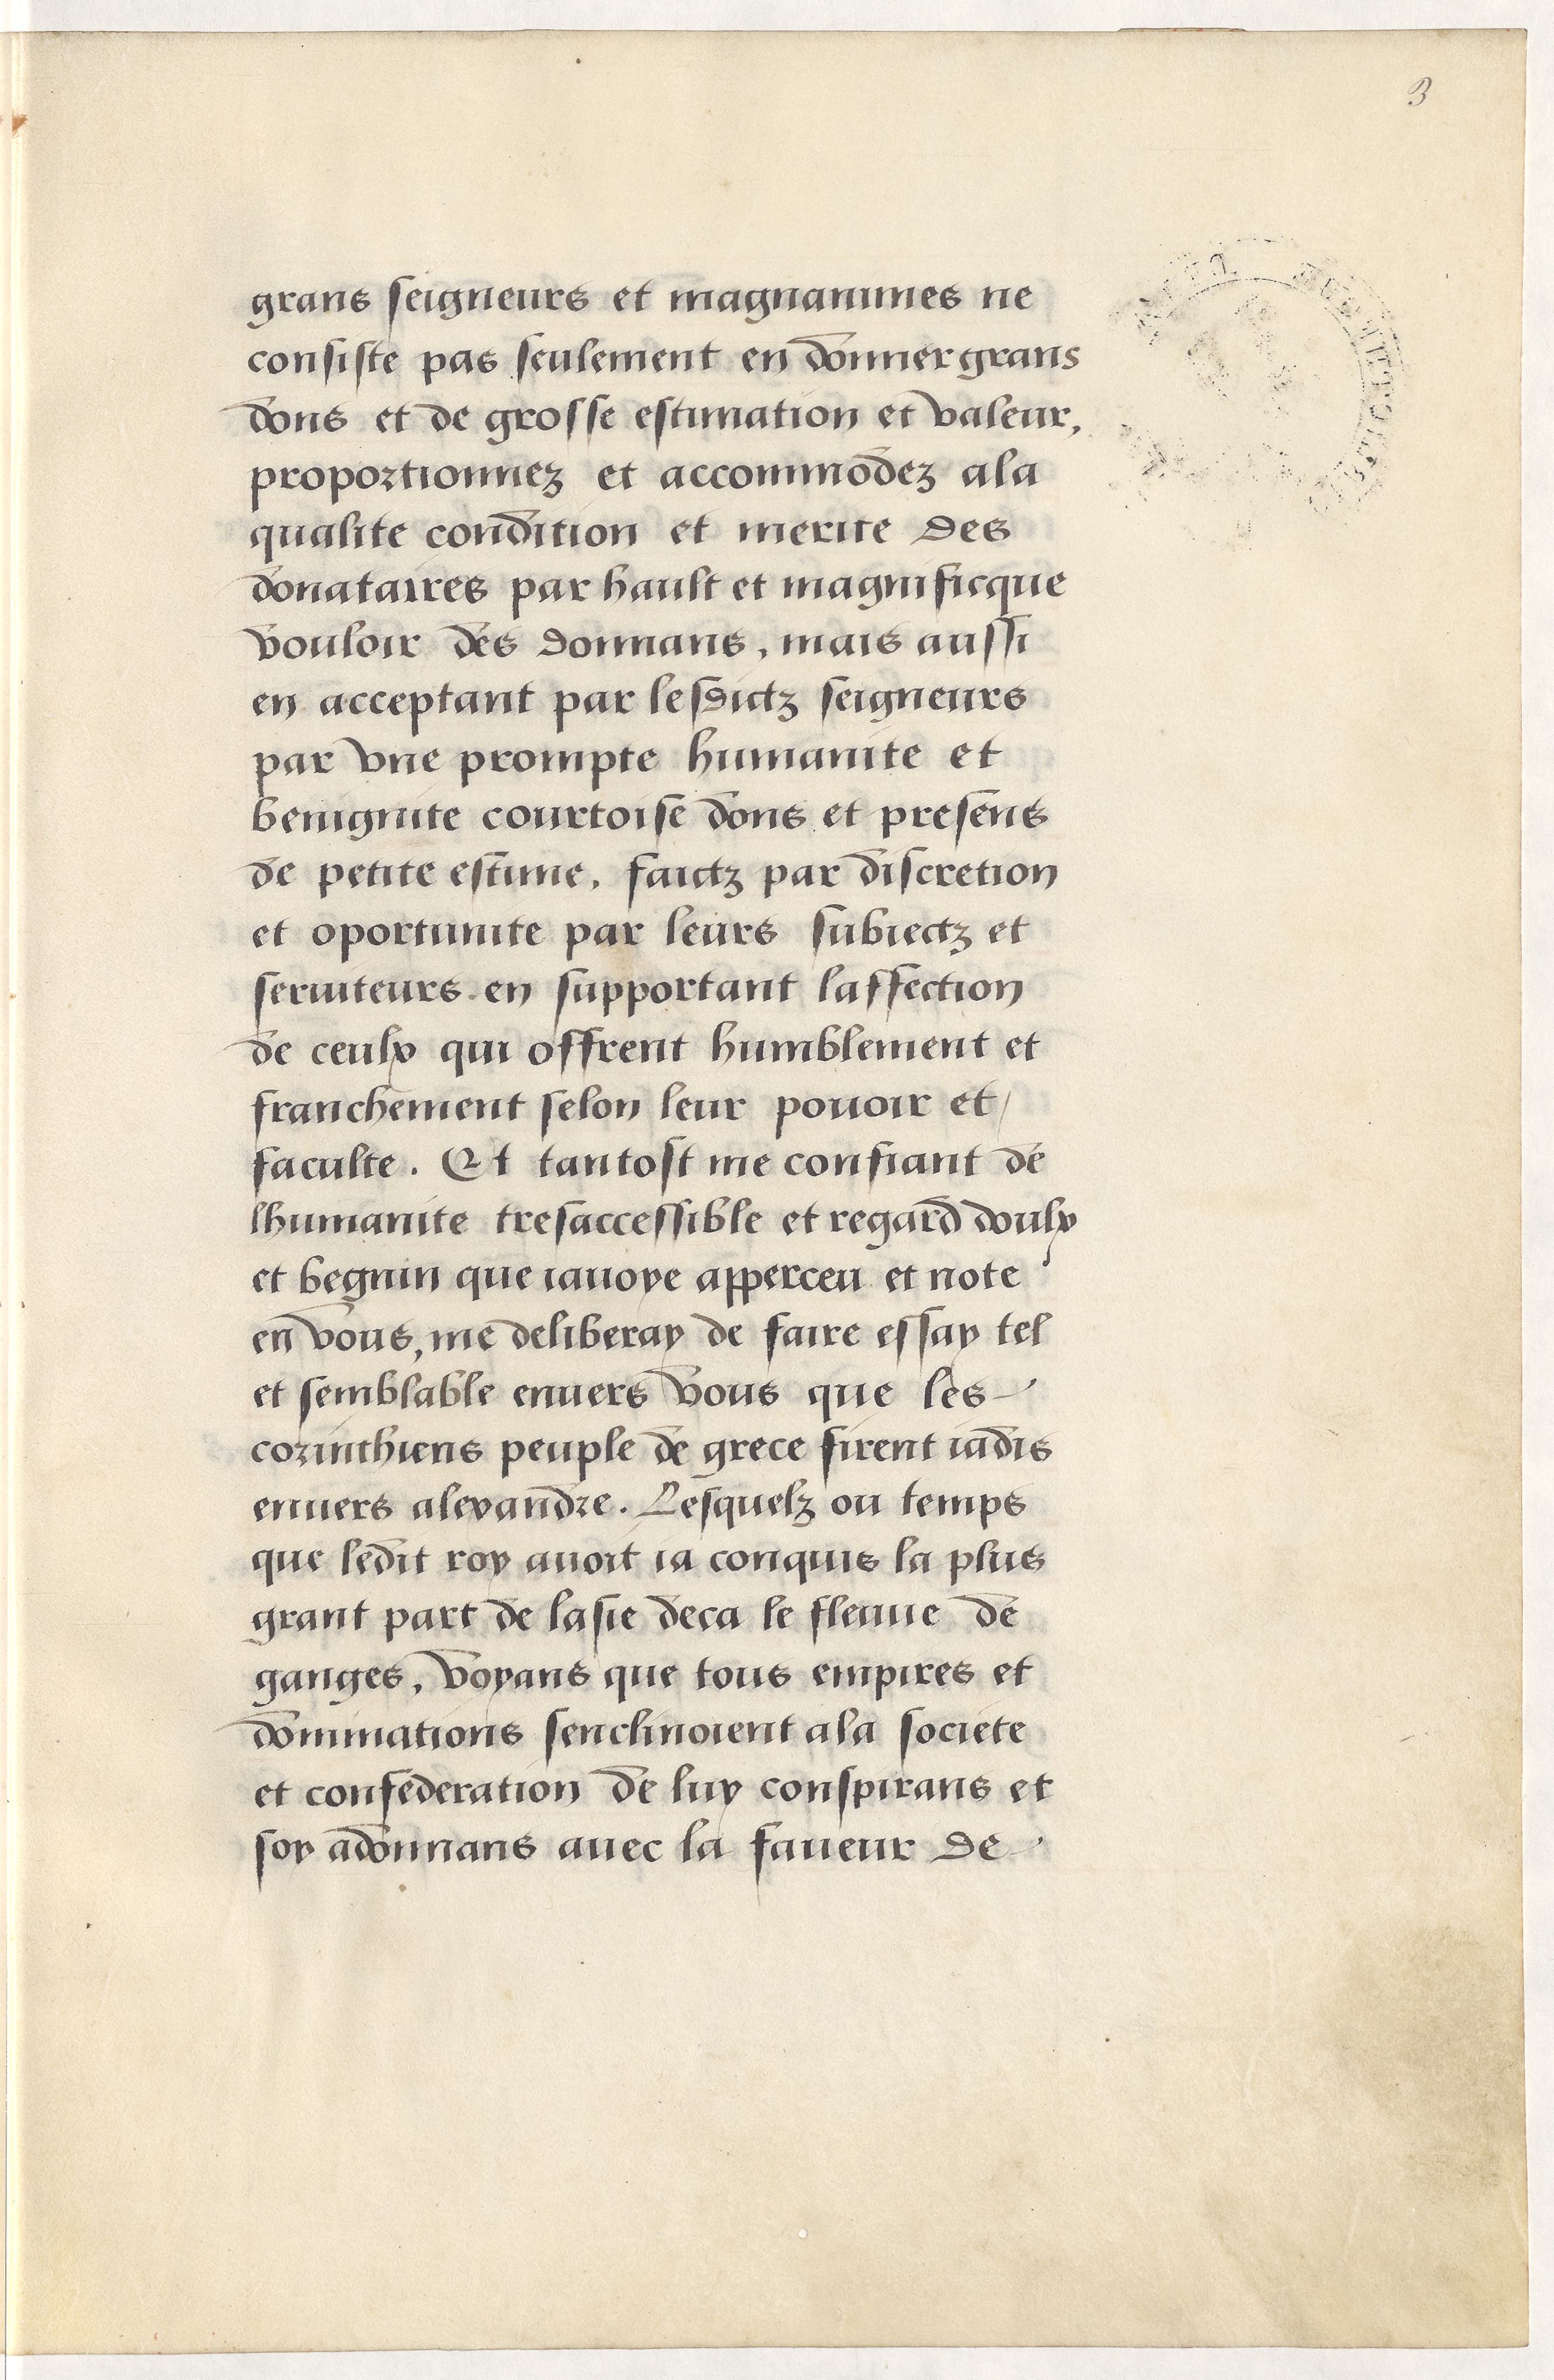 3
grans seigneurs et magnanimes ne
consiste pas seulement en donner grans
dons et de grosse estimation et valeur,
proportionnez et accommodez ala
qualite condition et merite des
donataires par hault et magnificque
vouloir des donnans, mais aussi
en acceptant par lesdictz seigneurs
par vne prompte humanite et
benignite courtoise dons et presens
de petite estime, faictz par discretion
et oportunite par leurs subiectz et
seruiteurs en supportant laffection
de ceulx qui offrent humblement et
franchement selon leur pouoir et
faculte. Et tantost me confiant de
lhumanite tresaccessible et regard doulx
et begnin que iauoye apperceu et note
en vous, me deliberay de faire essay tel
et semblable enuers vous que les
corinthiens peuple de grece firent iadis
enuers alexandre. Lesquelz ou temps
que ledit roy auoit ia conquis la plus
grant part de lasie deca le fleuue de
ganges, voyans que tous empires et
dominations senclinoient ala societe
et confederation de luy conspirans et
soy adonnans auec la faueur de